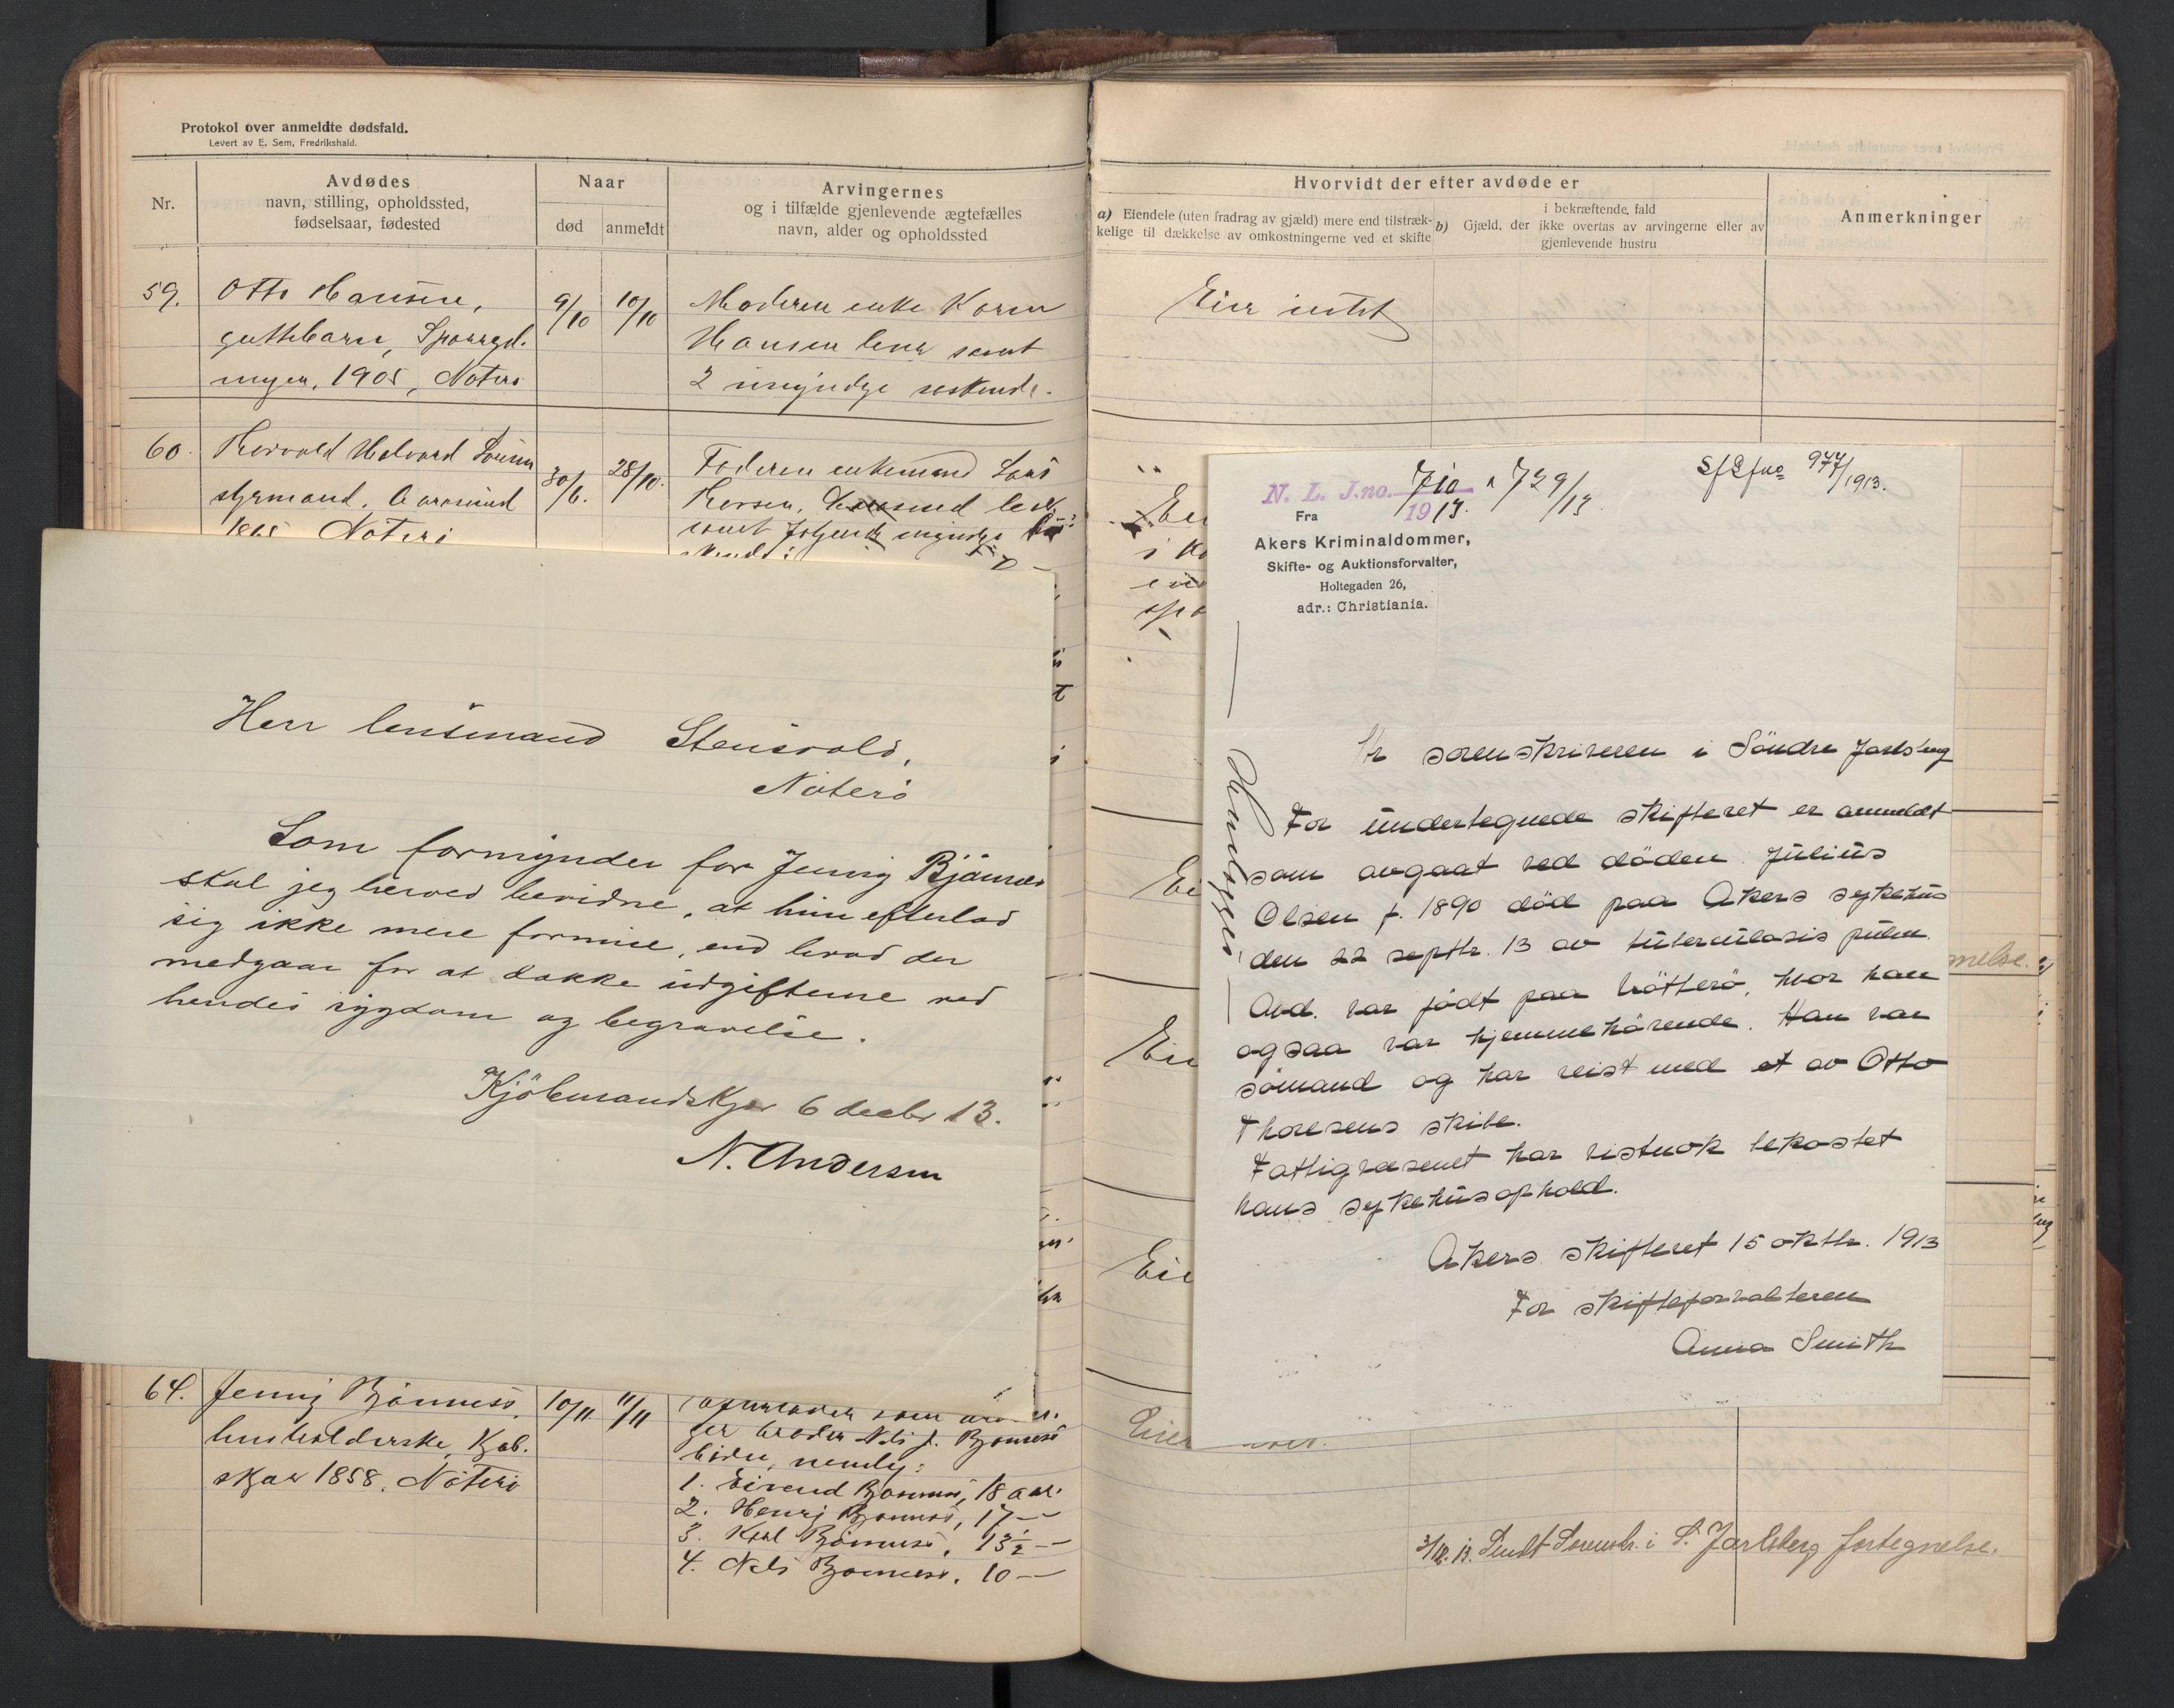 Protokol over anmeldte dødsfald.
Levert av E. Sem, Fredrikshald.
Nr.
Avdødes
navn, stilling, opholdssted,
fødselsaar, fødested
Naar
død
anmeldt
Arvingernes
og i tilfælde gjenlevende ægtefælles
navn, alder og opholdssted
59.
Otto Hansen,
guttebarn,
1905, Nøterø
9/10
10/10
Moderen enke Karen
Hansen samt
2 umyndge søskende.
60.
Thorvald Halvard
styrmand,
1865 Nøterø
30/6.
28/10.
Faderen enkemand Lars
samt følgende
Herr lensmand Stensvold,
Nöterö
Som formynder for Jenny Bjönnes
skal jeg herved bevidne, at hun efterlod
sig ikke mere formue, end hvad der
medgaar for at dække udgifterne ved
hendes sygdom og begravelse.
Kjöbmandskjær 6 decbr 13.
N. Andersen
64.
Jenny Bjønness,
husholderske, Kjøb.
skjær 1858, Nøterø
10/11
11/11
som
ger broder Nils J. Bjønness
börn, nemlig:
1. Eivend Bjønness, 18 aar.
2. Henry Bjønness, 17 —
3. Karl Bjønness, 13½ —
4. Nils Bjønness, 10 —
Hvorvidt der efter avdøde er
a) Eiendele (uten fradrag av gjæld) mere end tilstræk-
kelige til dækkelse av omkostningerne ved et skifte
i bekræftende fald
b) Gjæld, der ikke overtas av arvingerne eller av
gjenlevende hustru
Anmerkninger
Eier intet
N. L. J.no. 710 & 729/13
1913.
977/1913.
Fra
Akers Kriminaldommer,
Skifte- og Auktionsforvalter,
Holtegaden 26,
adr.: Christiania.
Hr sorenskriveren i Söndre Jarlsberg
For undertegnede skifteret er anmeldt
som avgaat ved döden Julius
Olsen f. 1890 död paa Akers sykehus
den 22 septbr. 13 av tuberculosis pulm.
Avd. var födt paa Nötterö, hvor han
ogsaa var hjemmehörende. Han var
sömand og har reist med et av Otto
Thoresens skibe.
Fattigvæsenet har vistnok bekostet
hans sykehusophold.
Akers skifteret 15 oktbr. 1913
For skifteforvalteren
Anna Smith
nelse.
Eier
3/12. 13. Sendt Sorenskr. i S. Jarlsberg fortegnelse.